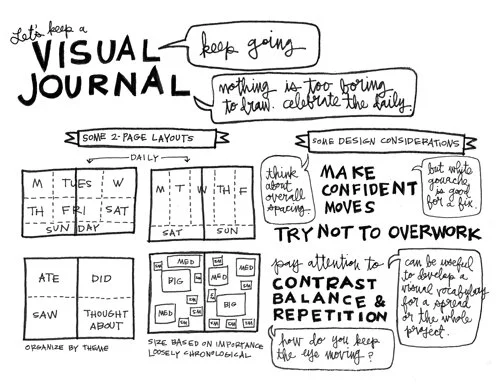 Let's keep a
VISUAL
JOURNAL
keep going
nothing is too boring
to draw. celebrate the daily.
SOME 2-PAGE LAYOUTS
DAILY
M TUES W
TH FRI SAT
SUNDAY
M T W TH F
SAT SUN
ATE DID
SAW THOUGHT
ABOUT
ORGANIZE BY THEME
MED SM SM MED
BIG MED SM
SM SM BIG
MED SM SM SM
SIZE BASED ON IMPORTANCE
LOOSELY CHRONOLOGICAL
SOME DESIGN CONSIDERATIONS
think
about
overall
spacing
MAKE
CONFIDENT
MOVES
but white
gouache
is good
for a fix.
TRY NOT TO OVERWORK
pay attention to
CONTRAST
BALANCE &
REPETITION
can be useful
to develop a
visual vocabulary
for a spread
or the whole
project.
how do you keep
the eye moving?